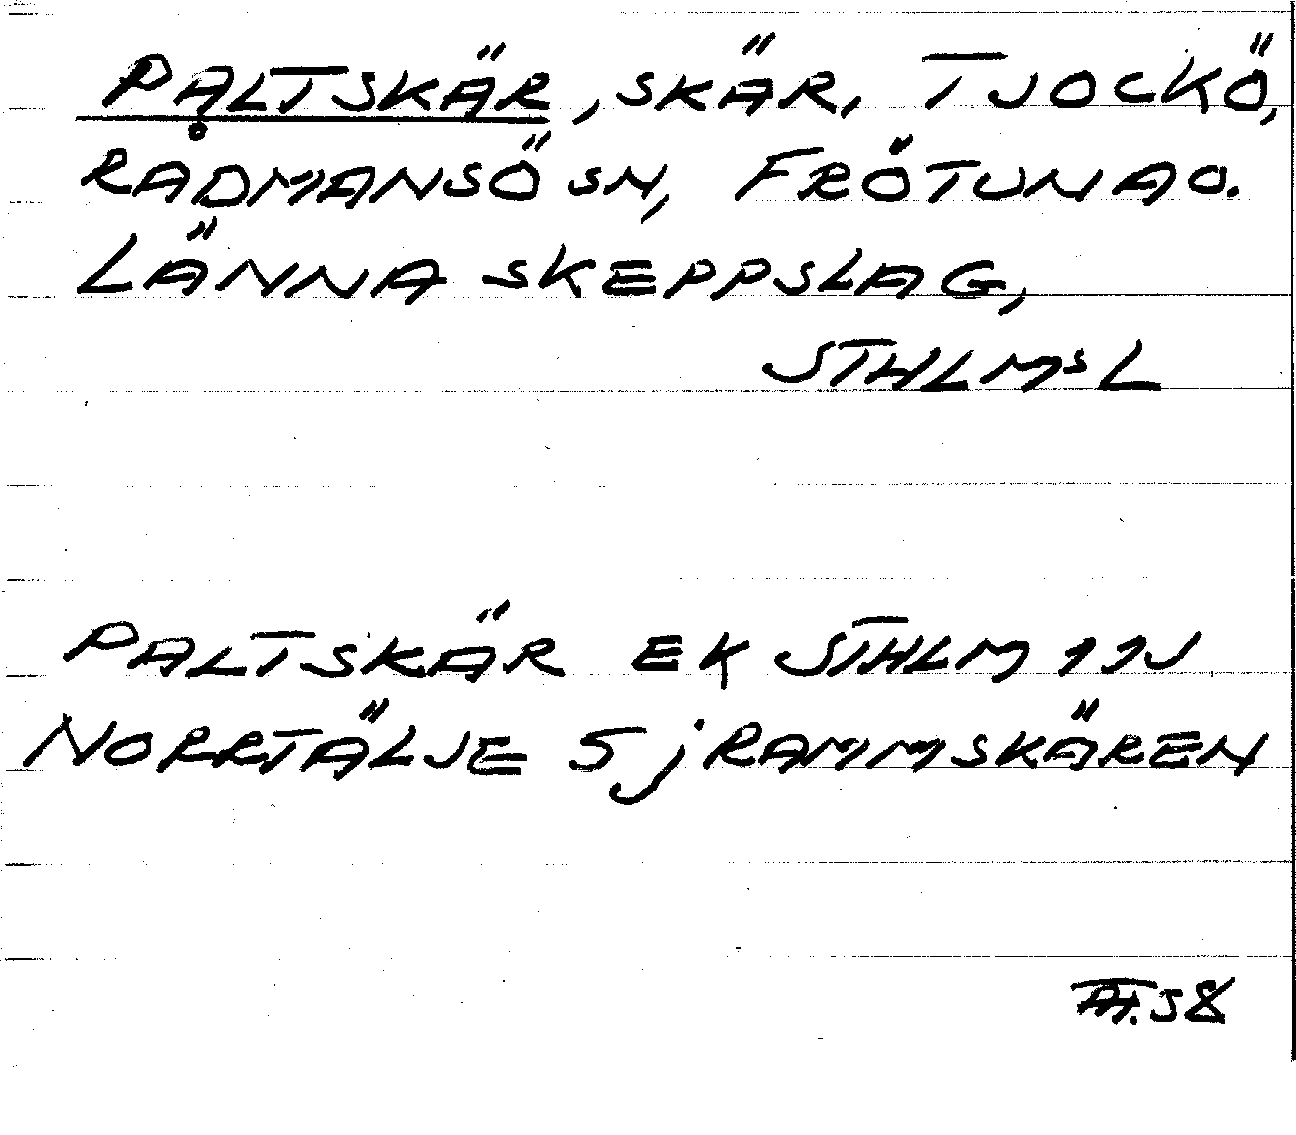 PALTSKÄR, SKÄR, TJOCKÖ,
RÅDMANSÖ SN, FRÖTUNA O.
LÄNNA SKEPPSLAG,
STHLMS L
PALTSKÄR EK STHLM 11J
NORRTÄLJE 5j RAMMSKÄREN
58